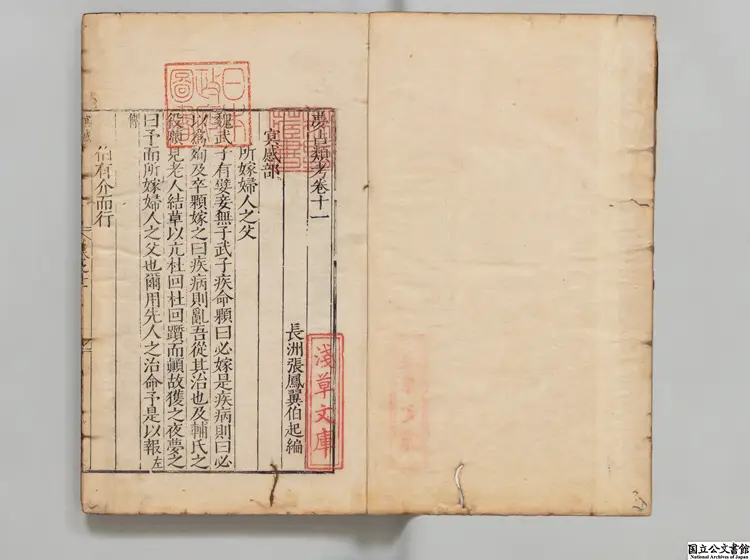 夢占類考卷十一
長洲張鳳翼伯起編
冥感部
所嫁婦人之父
魏武子有嬖妾無子武子疾命顆曰必嫁是疾病則曰必
以爲殉及卒顆嫁之曰疾病則亂吾從其治也及輔氏之
役顆見老人結草以亢杜回杜回躓而顛故獲之夜夢之
曰予而所嫁婦人之父也爾用先人之治命予是以報左
傳
伯有介而行
日本
政府
圖書
淺草文庫
国立公文書館
National Archives of Japan